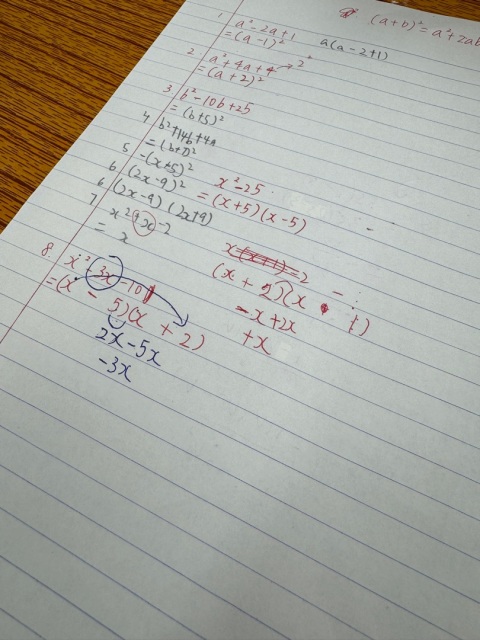 (a+b)² = a² + 2ab
1. a² - 2a + 1    a(a - 2 + 1)
= (a - 1)²
2. a² + 4a + 4 → 2²
= (a + 2)²
3. b² - 10b + 25
= (b + 5)²
4 b² + 14b + 49
= (b + 7)²
5 -(x + 5)²    x² - 25
6 (2x - 9)²    = (x + 5)(x - 5)
6 (2x - 9)(2x + 9)
7 x² + x - 2
= x
x(x+1) = 2
(x + 2)(x - 1)
-x + 2x
+x
8. x² - 3x - 10
= (x - 5)(x + 2)
2x - 5x
-3x